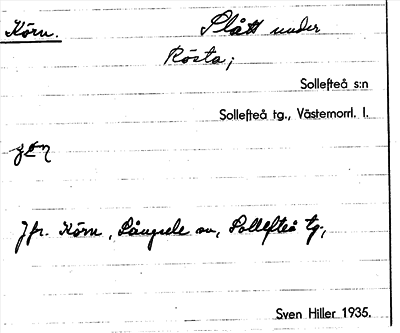 Körn. Slått under
Rösta;
Sollefteå s:n
Sollefteå tg., Västernorrl. l.
Jfr. Körn, Långsele sn, Sollefteå tg,
Sven Hiller 1935.